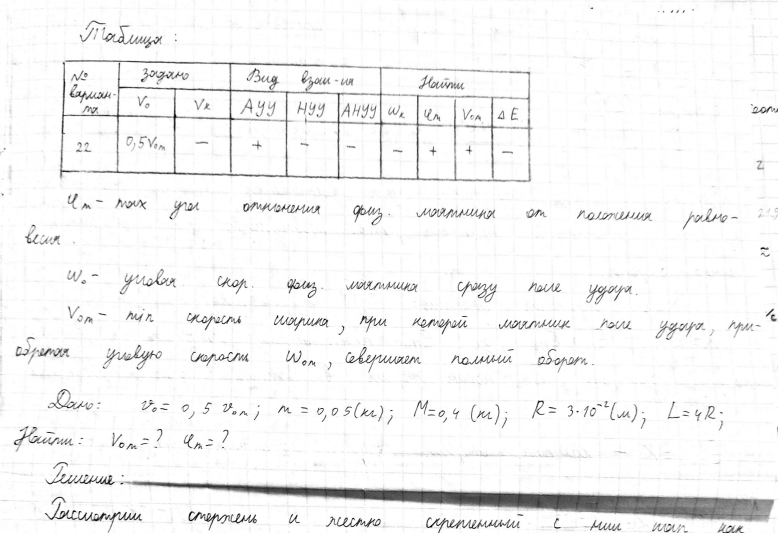 Таблица:
№ варианта | задано | Вид взаи-ия | Найти
V₀ | Vк | АУУ | НУУ | АНУУ | ωк | φm | V₀m | ΔE
22 | 0,5V₀m | − | + | − | − | − | + | + | −
φm - max угол отклонения физ. маятника от положения равно-
весия.
ω₀ - угловая скор. физ. маятника сразу после удара.
V₀m - min скорость шарика, при которой маятник после удара, при-
обретая угловую скорость ω₀m, совершает полный оборот.
Дано: v₀ = 0,5 v₀m; m = 0,05(кг); M = 0,4 (кг); R = 3·10⁻²(м); L = 4R;
Найти: V₀m = ? φm = ?
Решение:
Рассмотрим стержень и жестко скрепленный с ним шар как